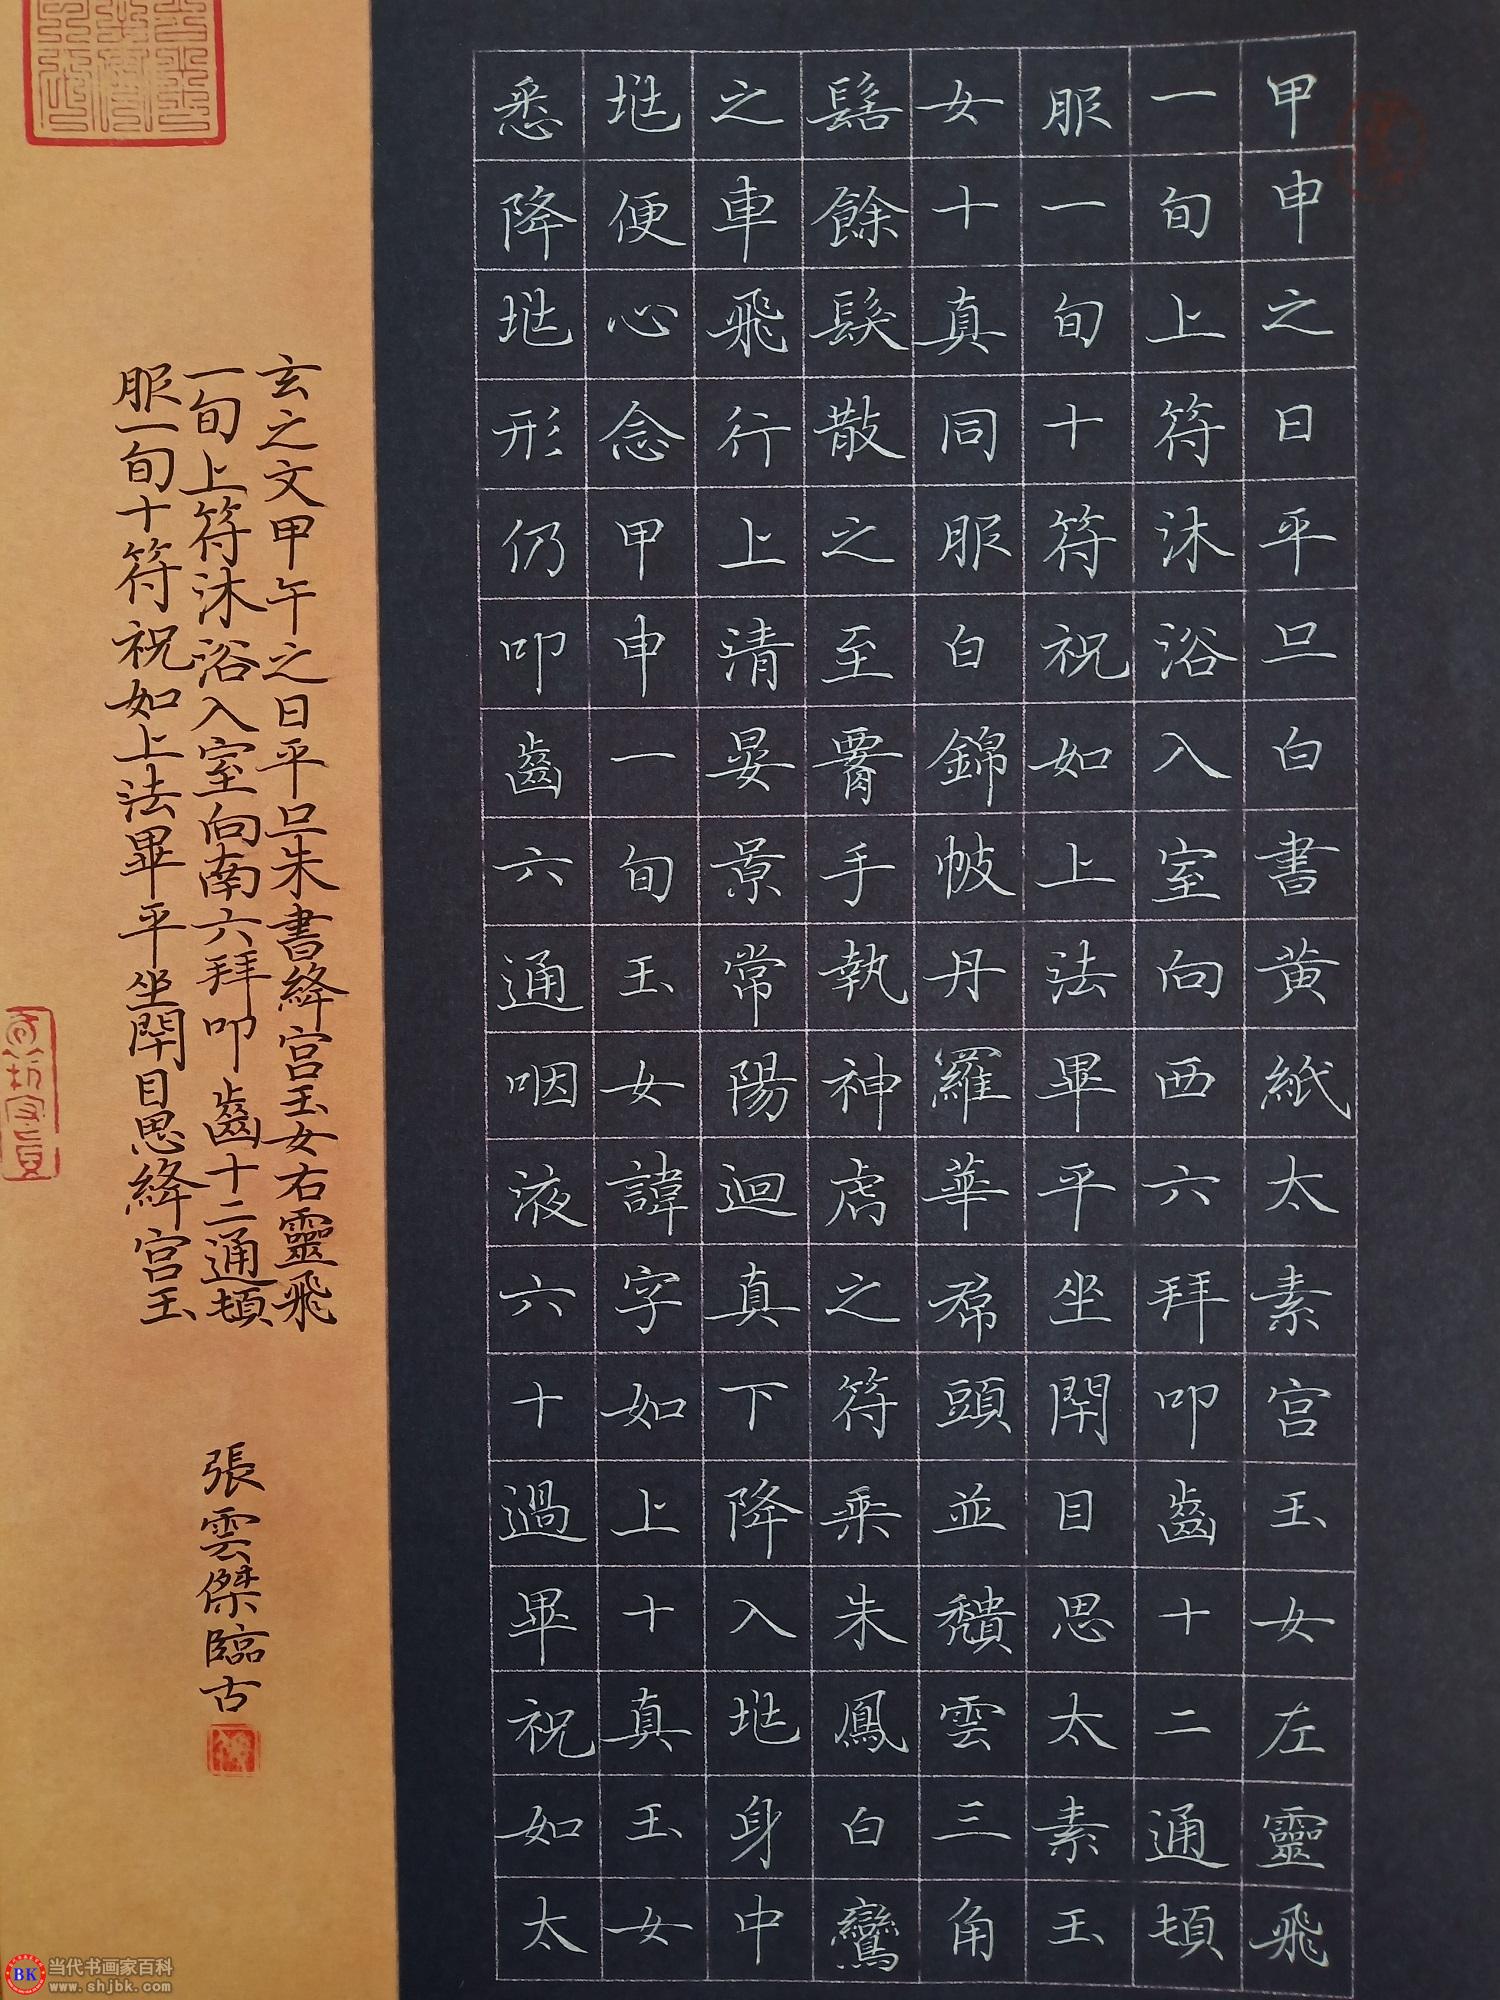 甲申之日平旦白書黄紙太素宫玉女左靈飛
一旬上符沐浴入室向西六拜叩齒十二通頓
服一旬十符祝如上法畢平坐閇目思太素玉
女十真同服白錦帔丹羅華帬頭並頹雲三角
髻餘髮散之至胷手執神虎之符乘朱鳳白鸞
之車飛行上清晏景常陽迴真下降入坔身中
坔便心念甲申一旬玉女諱字如上十真玉女
悉降坔形仍叩齒六通咽液六十過畢祝如太
玄之文甲午之日平旦朱書絳宫玉女右靈飛
一旬上符沐浴入室向南六拜叩齒十二通頓
服一旬十符祝如上法畢平坐閇目思絳宫玉
張雲傑臨古
當代书画家百科
www.shjbk.com
BK